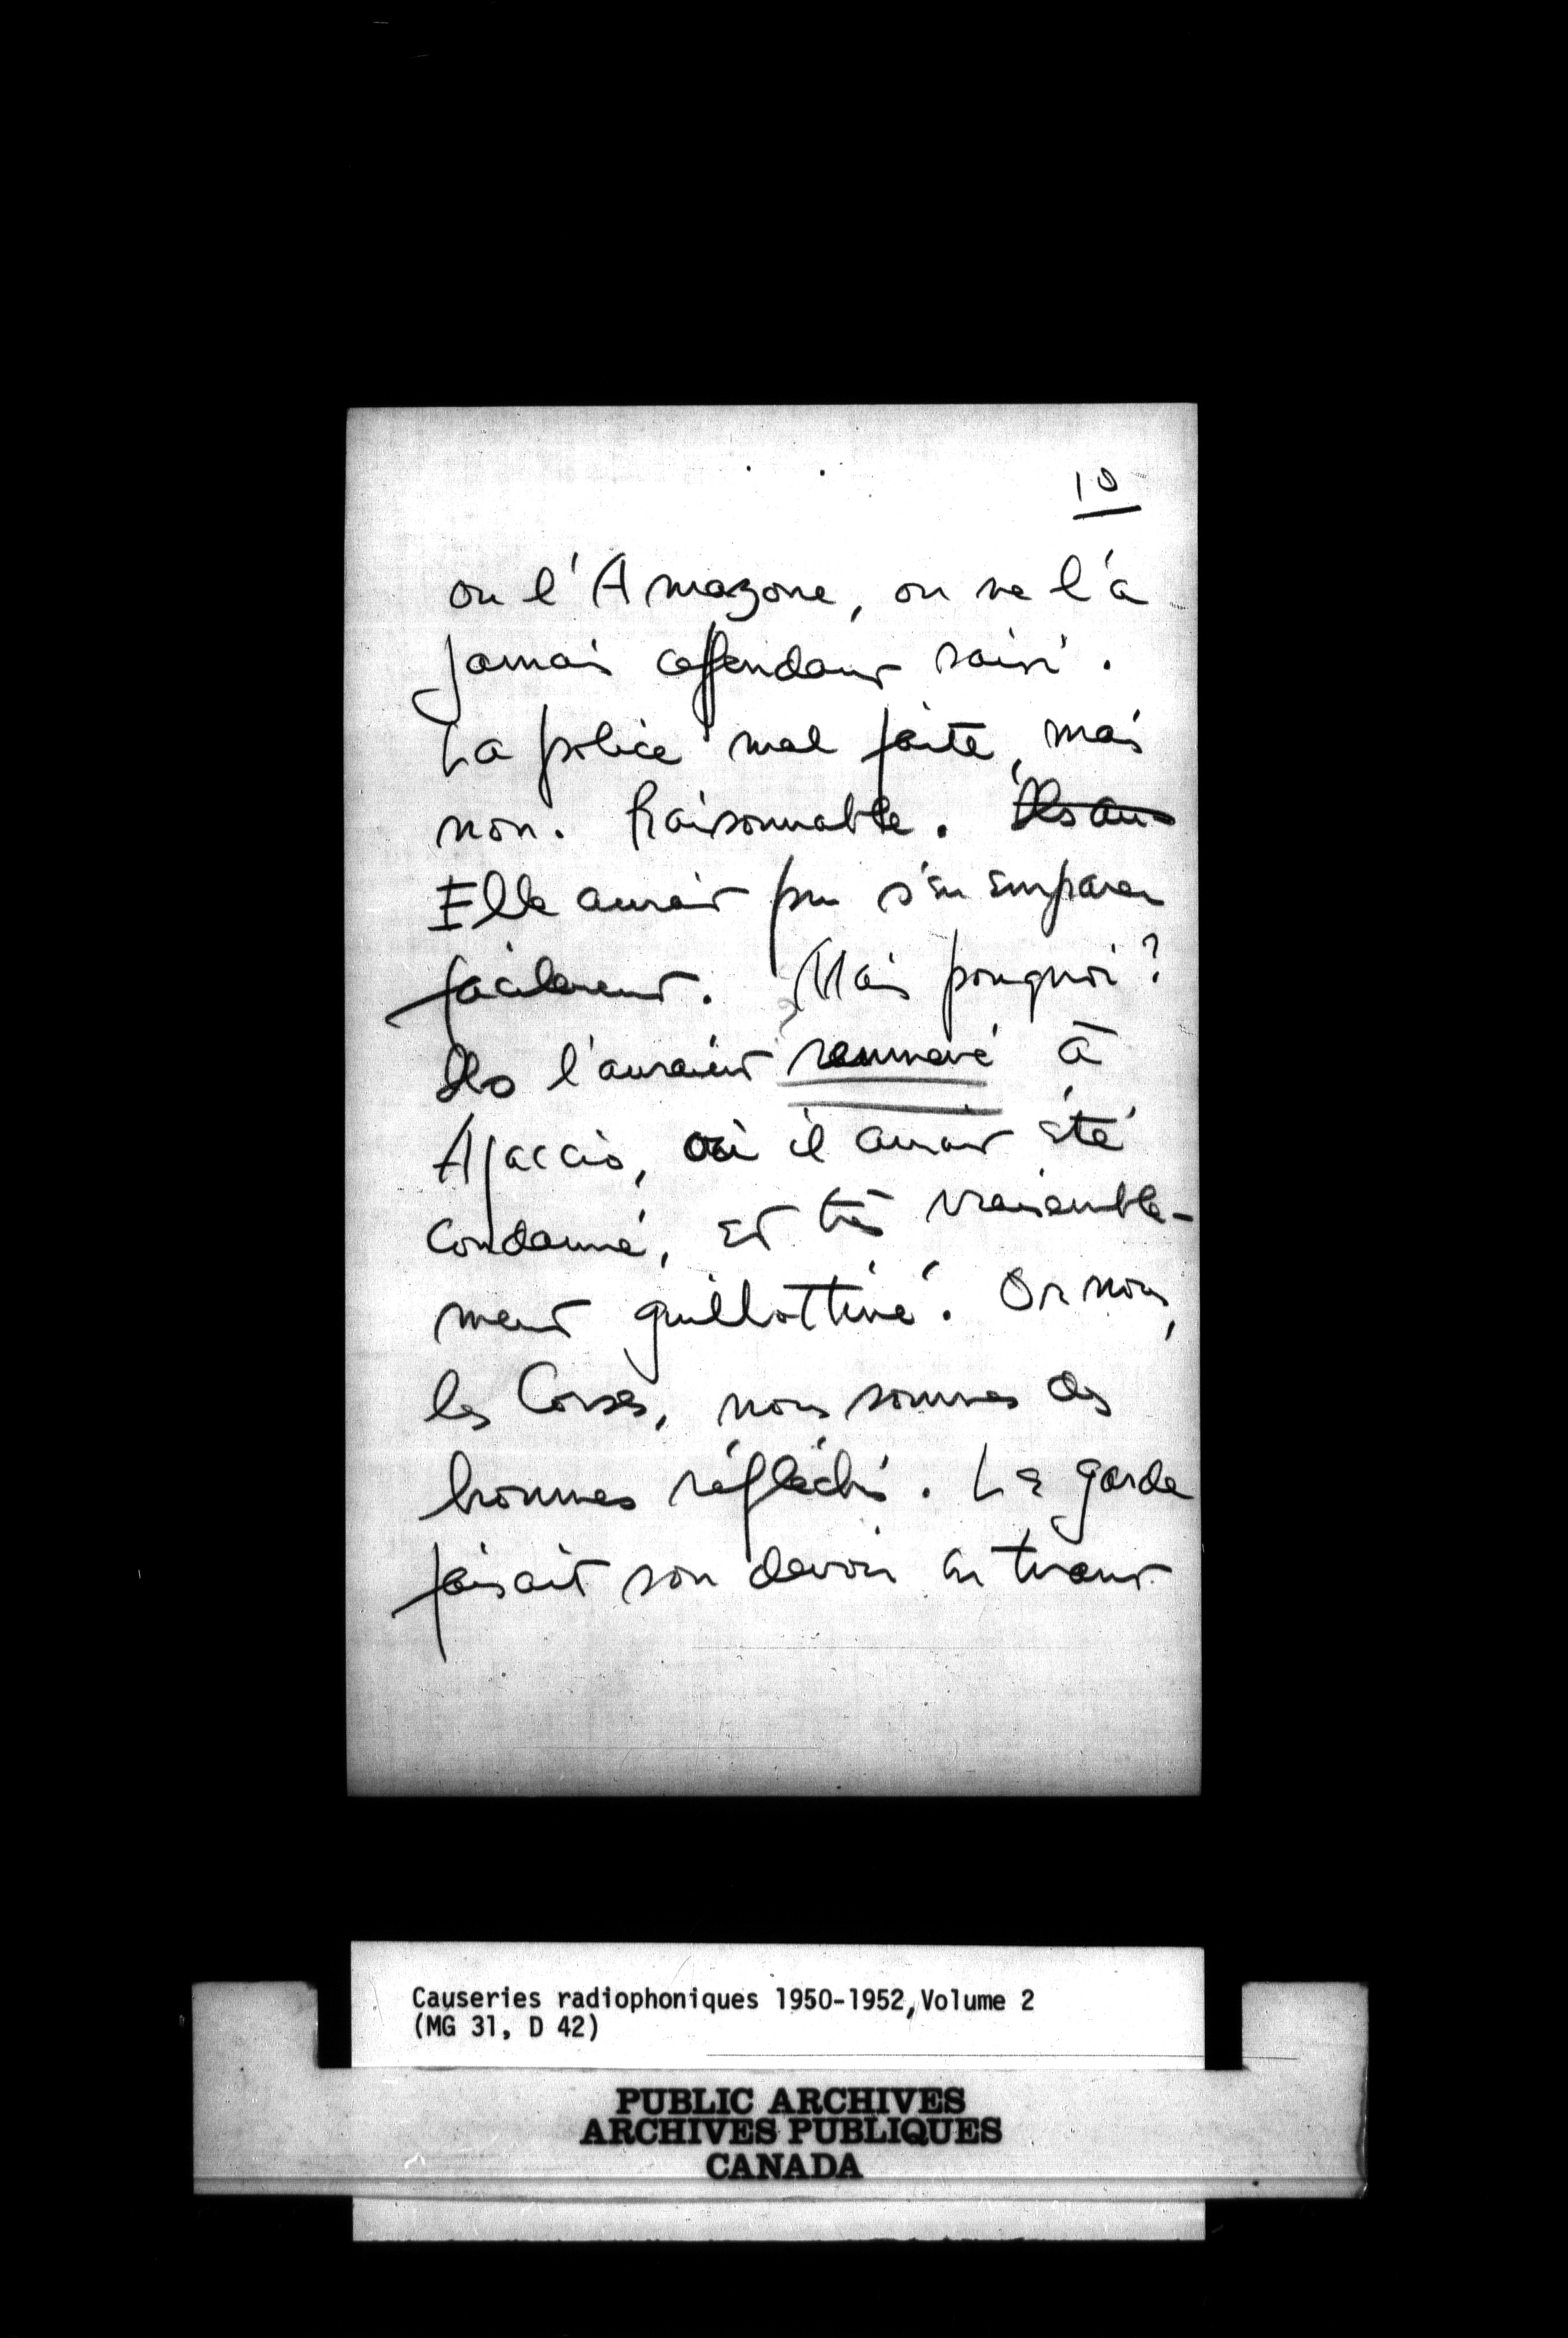 10
ou l'Amazone, on ne l'a
jamais cependant saisi.
La police mal faite, mais
non. Raisonnable. Ils au
Elle aurait pu s'en emparer
facilement. Mais pourquoi?
Ils l'auraient ramené à
Ajaccio, où il aurait été
condamné, et très vraisemble-
ment guillottiné. Or nous,
les Corses, nous sommes des
hommes réfléchis. Le garde
faisait son devoir en tirant
Causeries radiophoniques 1950-1952, Volume 2
(MG 31, D 42)
PUBLIC ARCHIVES
ARCHIVES PUBLIQUES
CANADA